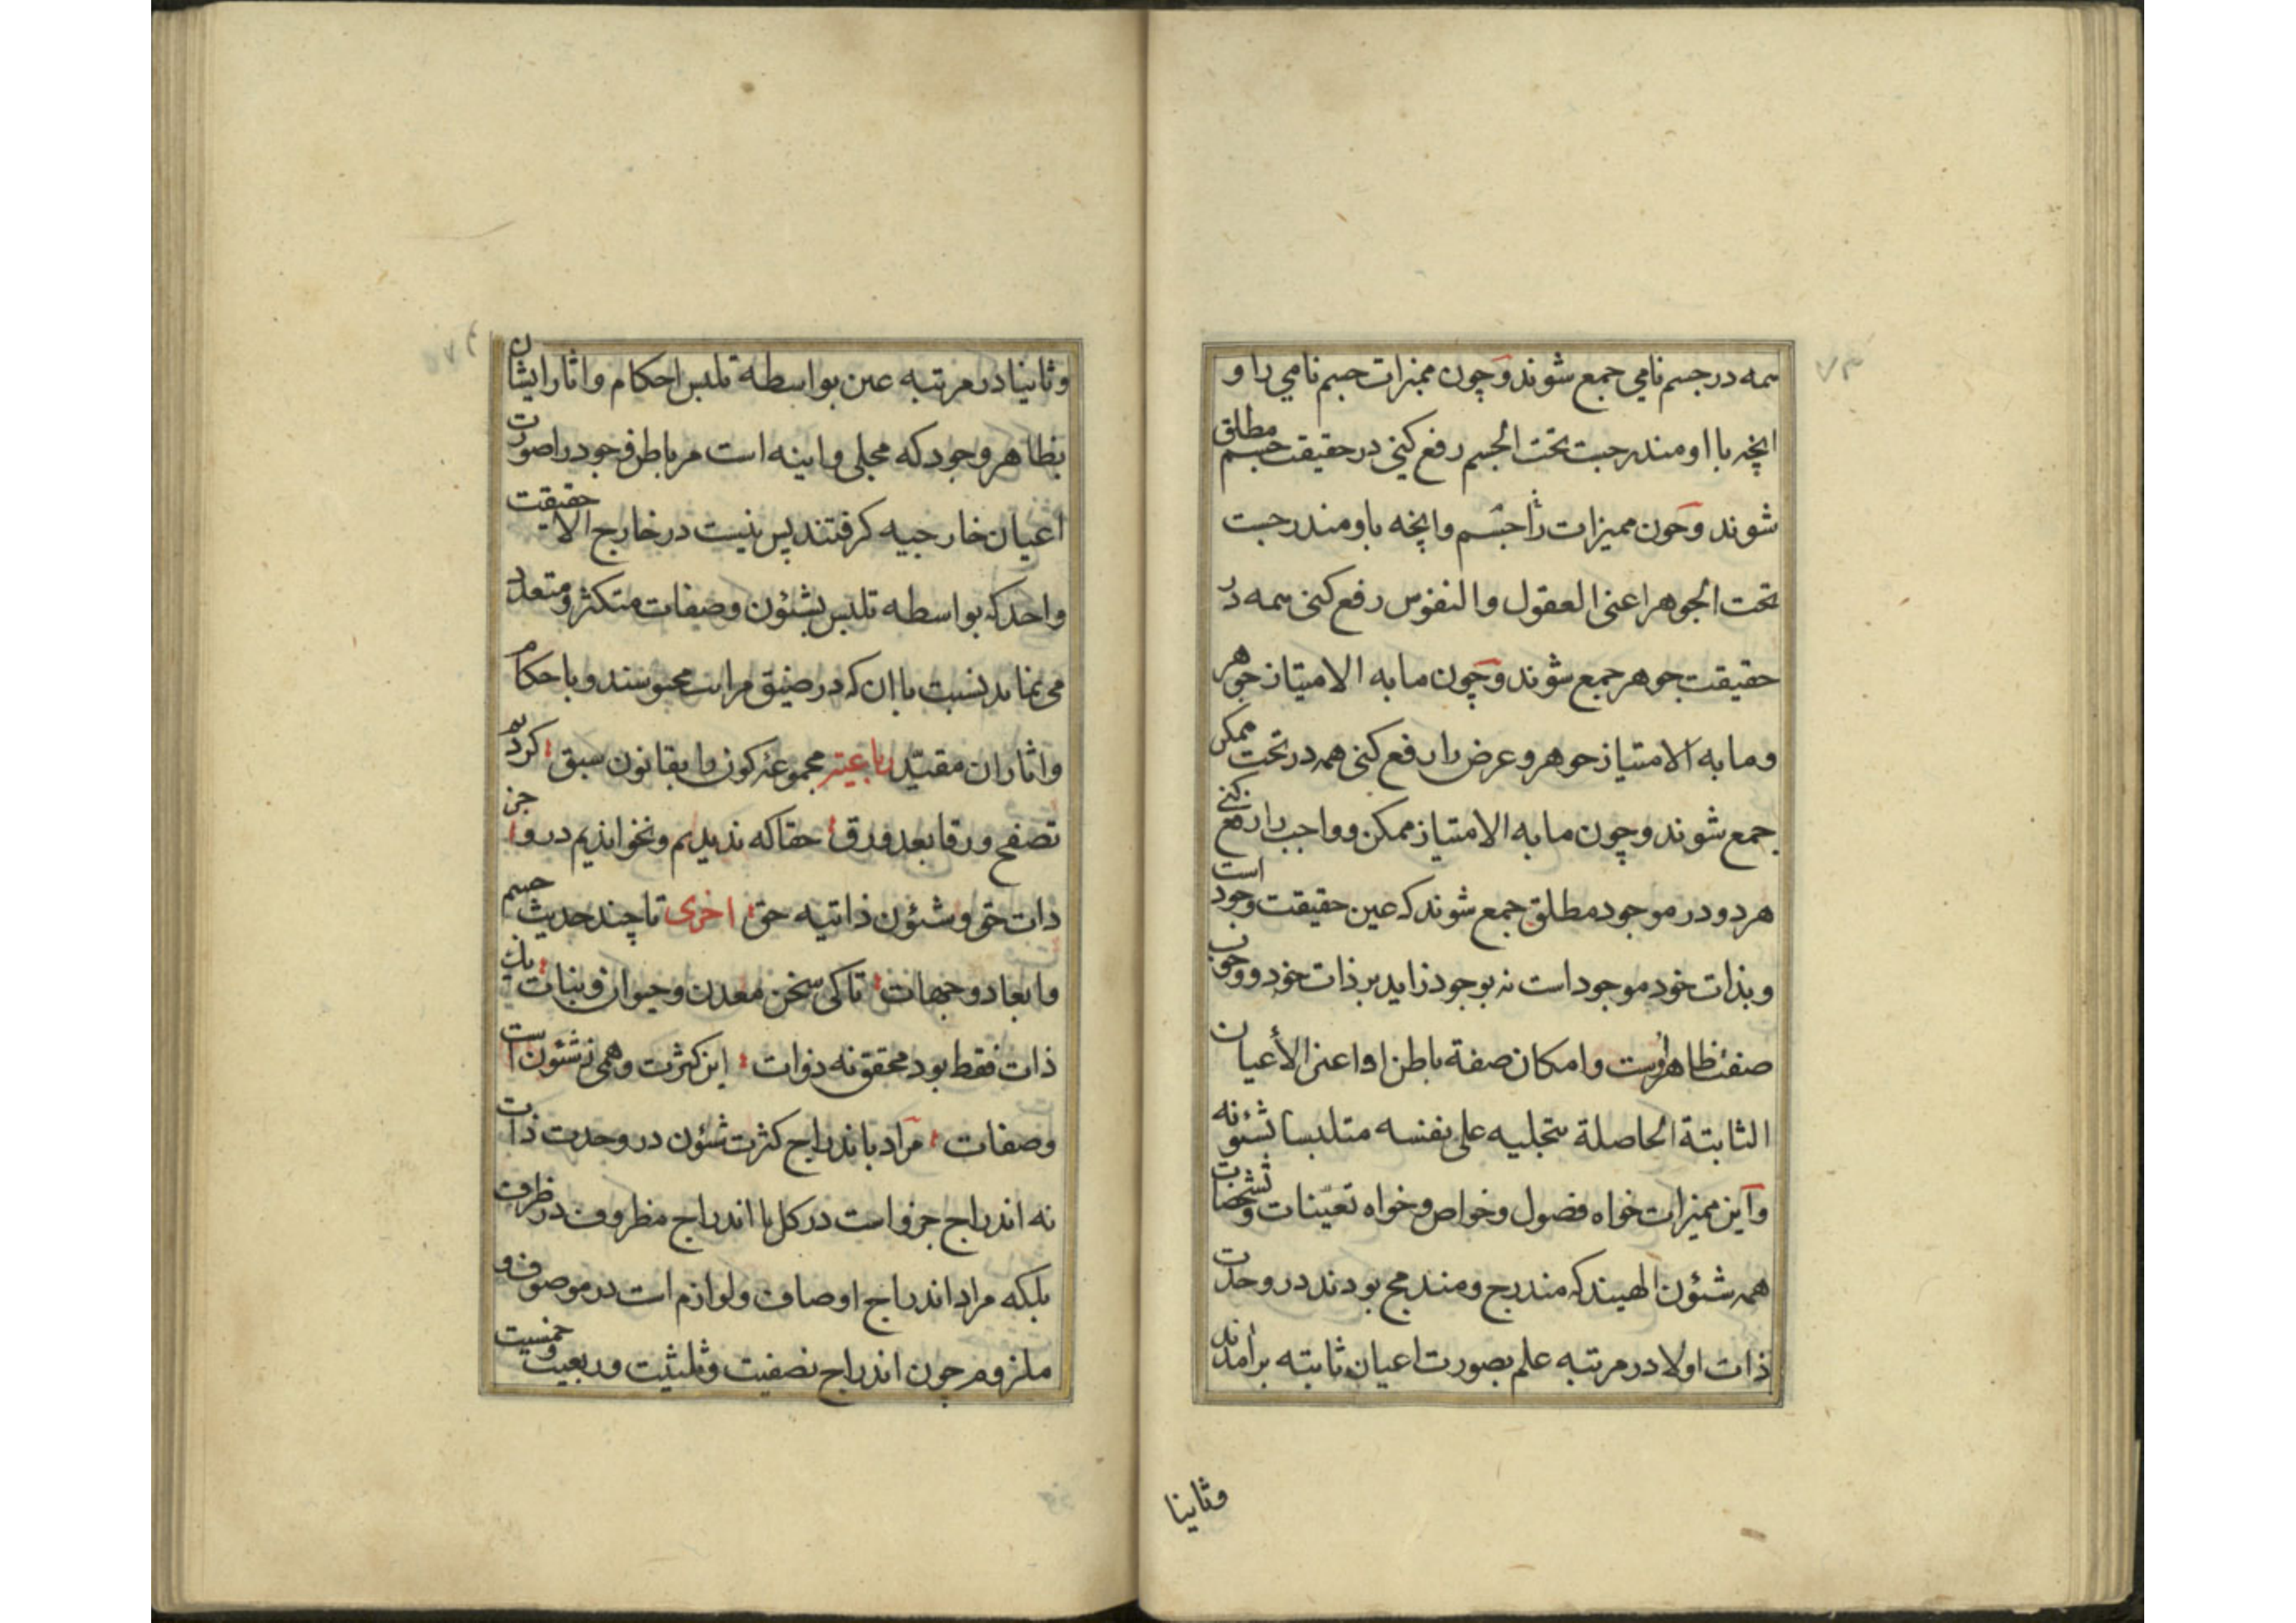 همه در جسم نامی جمع شوند و چون ممیزات جسم نامی را و
انچه با او مندرجست تحت الجسم رفع کنی در حقیقت جسم مطلق
شوند و چون ممیزات را جسم وانچه باو مندرجست
تحت الجوهر اعنی العقول والنفوس رفع کنی همه در
حقیقت جوهر جمع شوند و چون مابه الامتیاز جوهر
و مابه الامتیاز جوهر و عرض را رفع کنی همه در تحت ممکن
جمع شوند و چون مابه الامتیاز ممکن و واجب را رفع کنی
هر دو در موجود مطلق جمع شوند که عین حقیقت وجود است
و بذات خود موجود است نه بوجود زاید بر ذات خود و وجوب
صفت ظاهر اوست و امکان صفة باطن او اعنی الأعیان
الثابتة الحاصلة بتجلیه علی نفسه متلبسا بشئونه
و این ممیزات خواه فصول و خواص و خواه تعینات و تشخصات
همه شئون الهیند که مندرج و مندمج بودند در وحدت
ذات اولا در مرتبه علم بصورت اعیان ثابته برامدند
وثانیا
وثانیا در مرتبه عین بواسطه تلبس احکام و اثار ایشان
بظاهر وجود که مجلی و اینه است مر باطن وجود را صورت
اعیان خارجیه کرفتند پس نیست در خارج الا حقیقت
واحد که بواسطه تلبس بشئون و صفات متکثر و متعدد
می نماید نسبت با ان که در ضیق مراتب محبوسند و باحکام
واثار ان مقید رباعیه مجموعه کون را بقانون سبق کردیم
تصفح ورقا بعد ورق حقا که ندیدیم و نخواندیم درو جز
ذات حق و شئون ذاتیه حق اخری تا چند حدیث جسم
وابعاد و جهات تا کی سخن معدن و حیوان و نبات یک
ذات فقط بود محقق نه ذوات این کثرت وهمی ز شئون است
و صفات مراد باندراج کثرت شئون در وحدت ذات
نه اندراج جزو است در کل یا اندراج مظروف در ظرف
بلکه مراد اندراج اوصاف و لوازم است در موصوف و
ملزوم چون اندراج نصفیت و ثلثیت و ربعیت و خمسیت